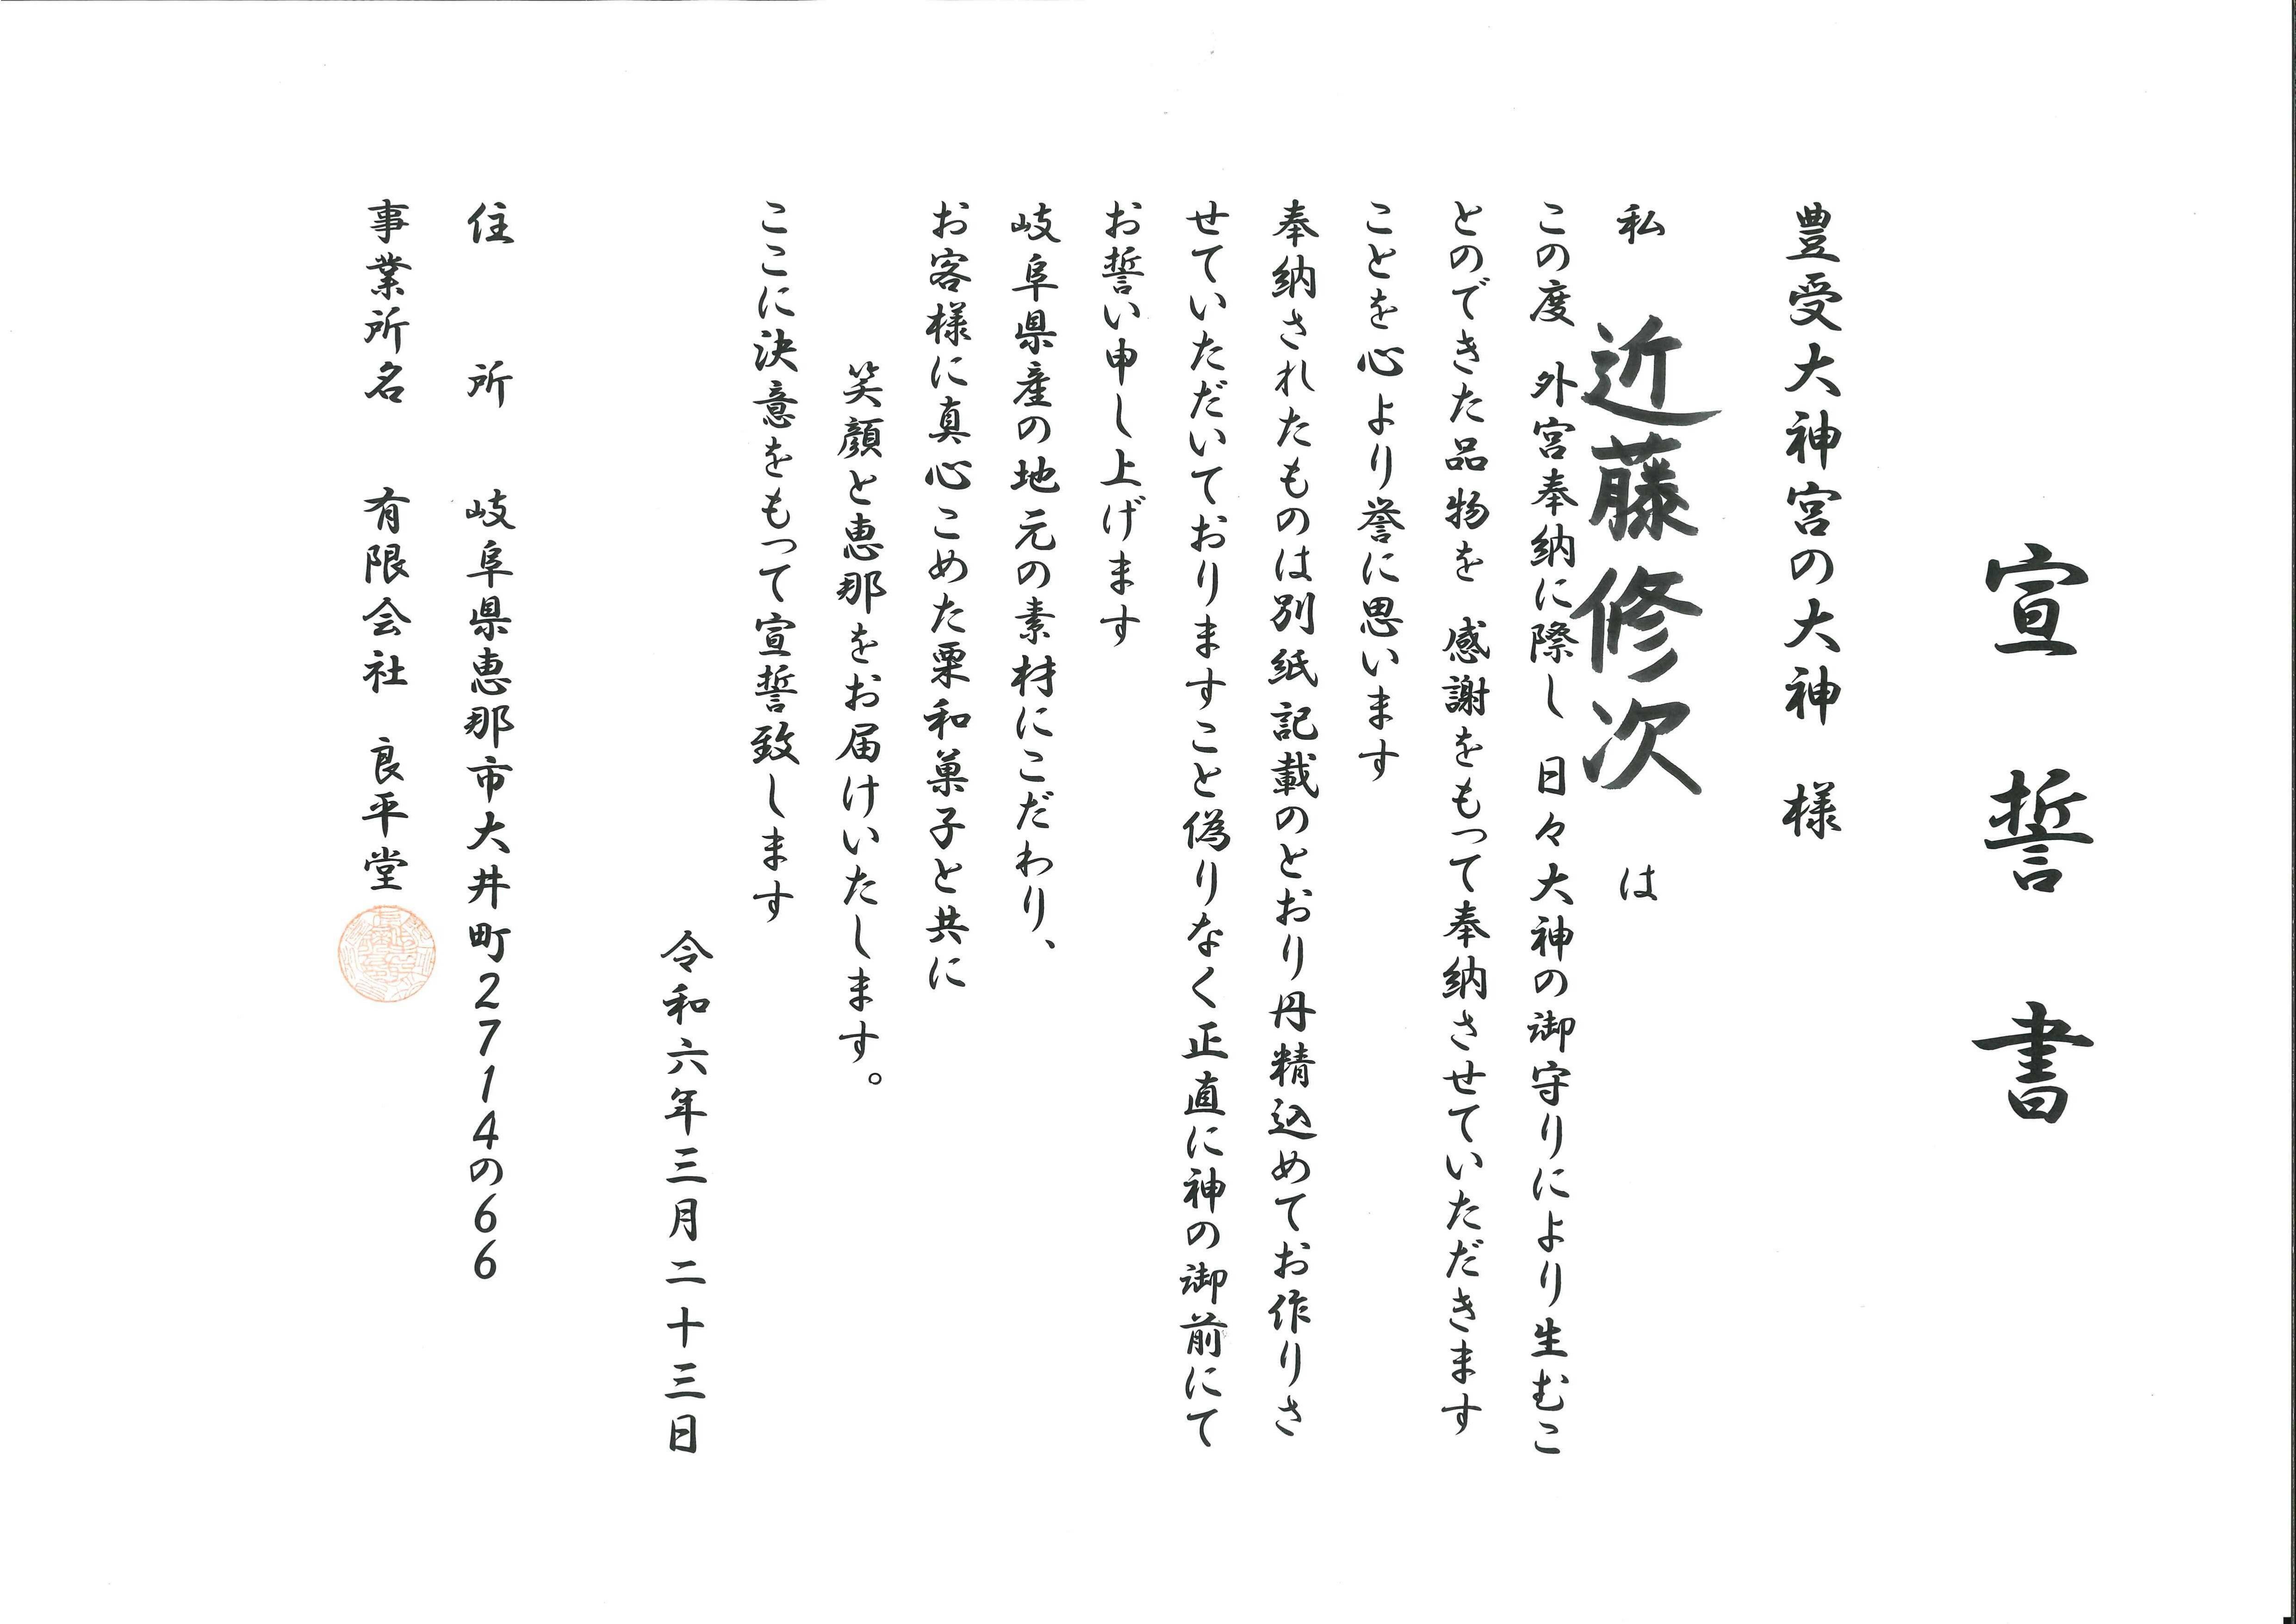 宣誓書
豊受大神宮の大神 様
私 近藤修次 は
この度 外宮奉納に際し 日々大神の御守りにより生むこ
とのできた品物を 感謝をもって奉納させていただきます
ことを心より誉に思います
奉納されたものは別紙記載のとおり丹精込めてお作りさ
せていただいておりますこと偽りなく正直に神の御前にて
お誓い申し上げます
岐阜県産の地元の素材にこだわり、
お客様に真心こめた栗和菓子と共に
笑顔と恵那をお届けいたします。
ここに決意をもって宣誓致します
令和六年三月二十三日
住所 岐阜県恵那市大井町2714の66
事業所名 有限会社 良平堂